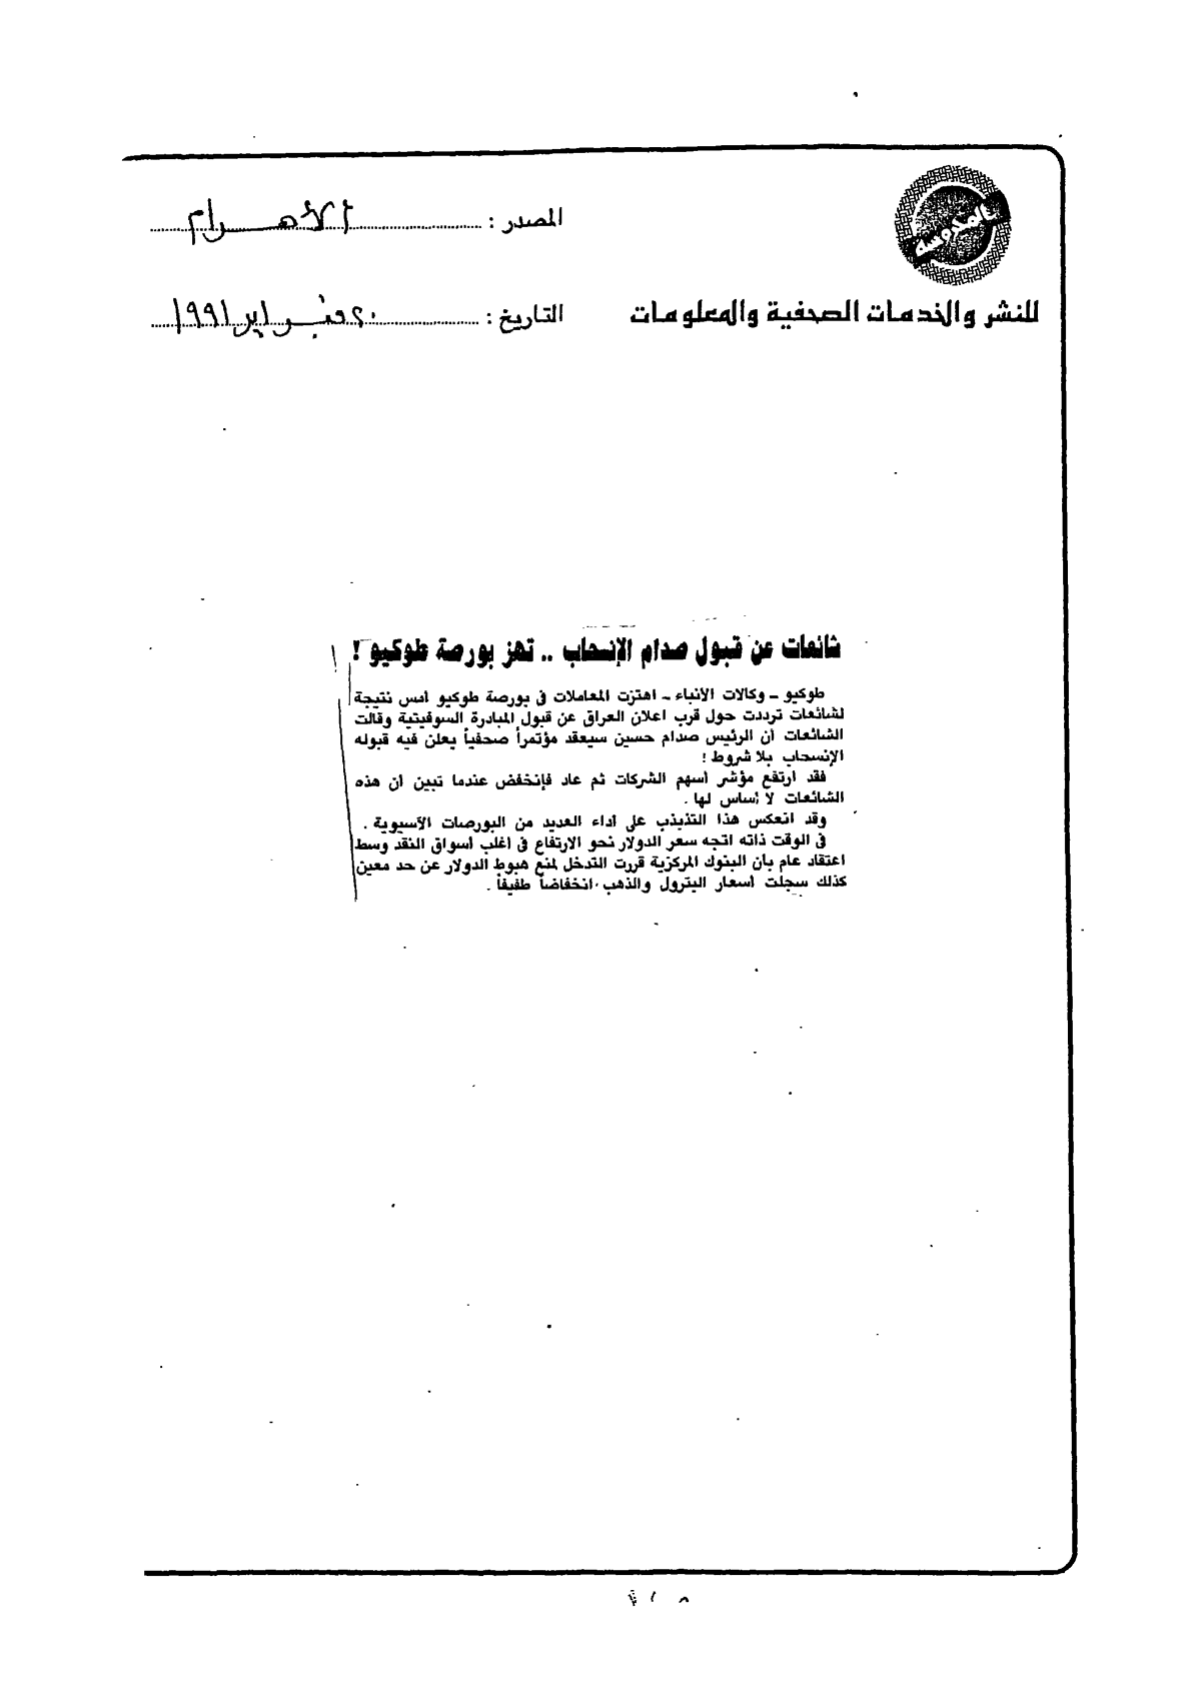 المصدر : الأهرام
للنشر والخدمات الصحفية والمعلومات
التاريخ : ٢٠ فبراير ١٩٩١
شائعات عن قبول صدام الإنسحاب .. تهز بورصة طوكيو !
طوكيو - وكالات الأنباء - اهتزت المعاملات فى بورصة طوكيو أمس نتيجة
لشائعات ترددت حول قرب اعلان العراق عن قبول المبادرة السوفيتية وقالت
الشائعات أن الرئيس صدام حسين سيعقد مؤتمراً صحفياً يعلن فيه قبوله
الإنسحاب بلا شروط !
فقد ارتفع مؤشر أسهم الشركات ثم عاد فإنخفض عندما تبين ان هذه
الشائعات لا أساس لها .
وقد انعكس هذا التذبذب على أداء العديد من البورصات الآسيوية .
فى الوقت ذاته اتجه سعر الدولار نحو الارتفاع فى أغلب أسواق النقد وسط
اعتقاد عام بأن البنوك المركزية قررت التدخل لمنع هبوط الدولار عن حد معين
كذلك سجلت أسعار البترول والذهب انخفاضاً طفيفاً .